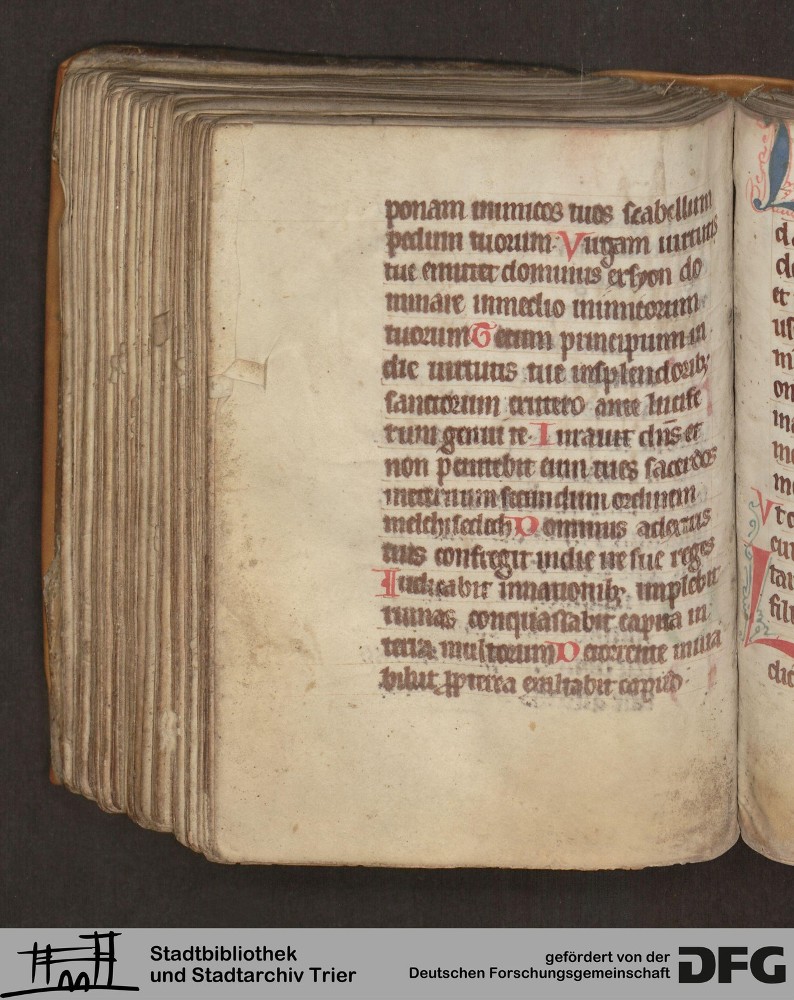 ponam inimicos tuos scabellum
pedum tuorum Virgam uirtutis
tue emittet dominus ex syon do
minare inmedio inimicorum
tuorum Tecum principium in
die uirtutis tue insplendorib;
sanctorum exutero ante lucife
rum genui te Iurauit dn̄s et
non penitebit eum tu es sacerdos
ineternum secundum ordinem
melchisedech Dominus adextris
tuis confregit indie ire sue reges
Iudicabit innationib; implebit
ruinas conquassabit capita in
terra multorum Detorrente inuia
bibit ꝓpterea exaltabit capud
d
et
on
Stadtbibliothek
und Stadtarchiv Trier
gefördert von der
Deutschen Forschungsgemeinschaft
DFG